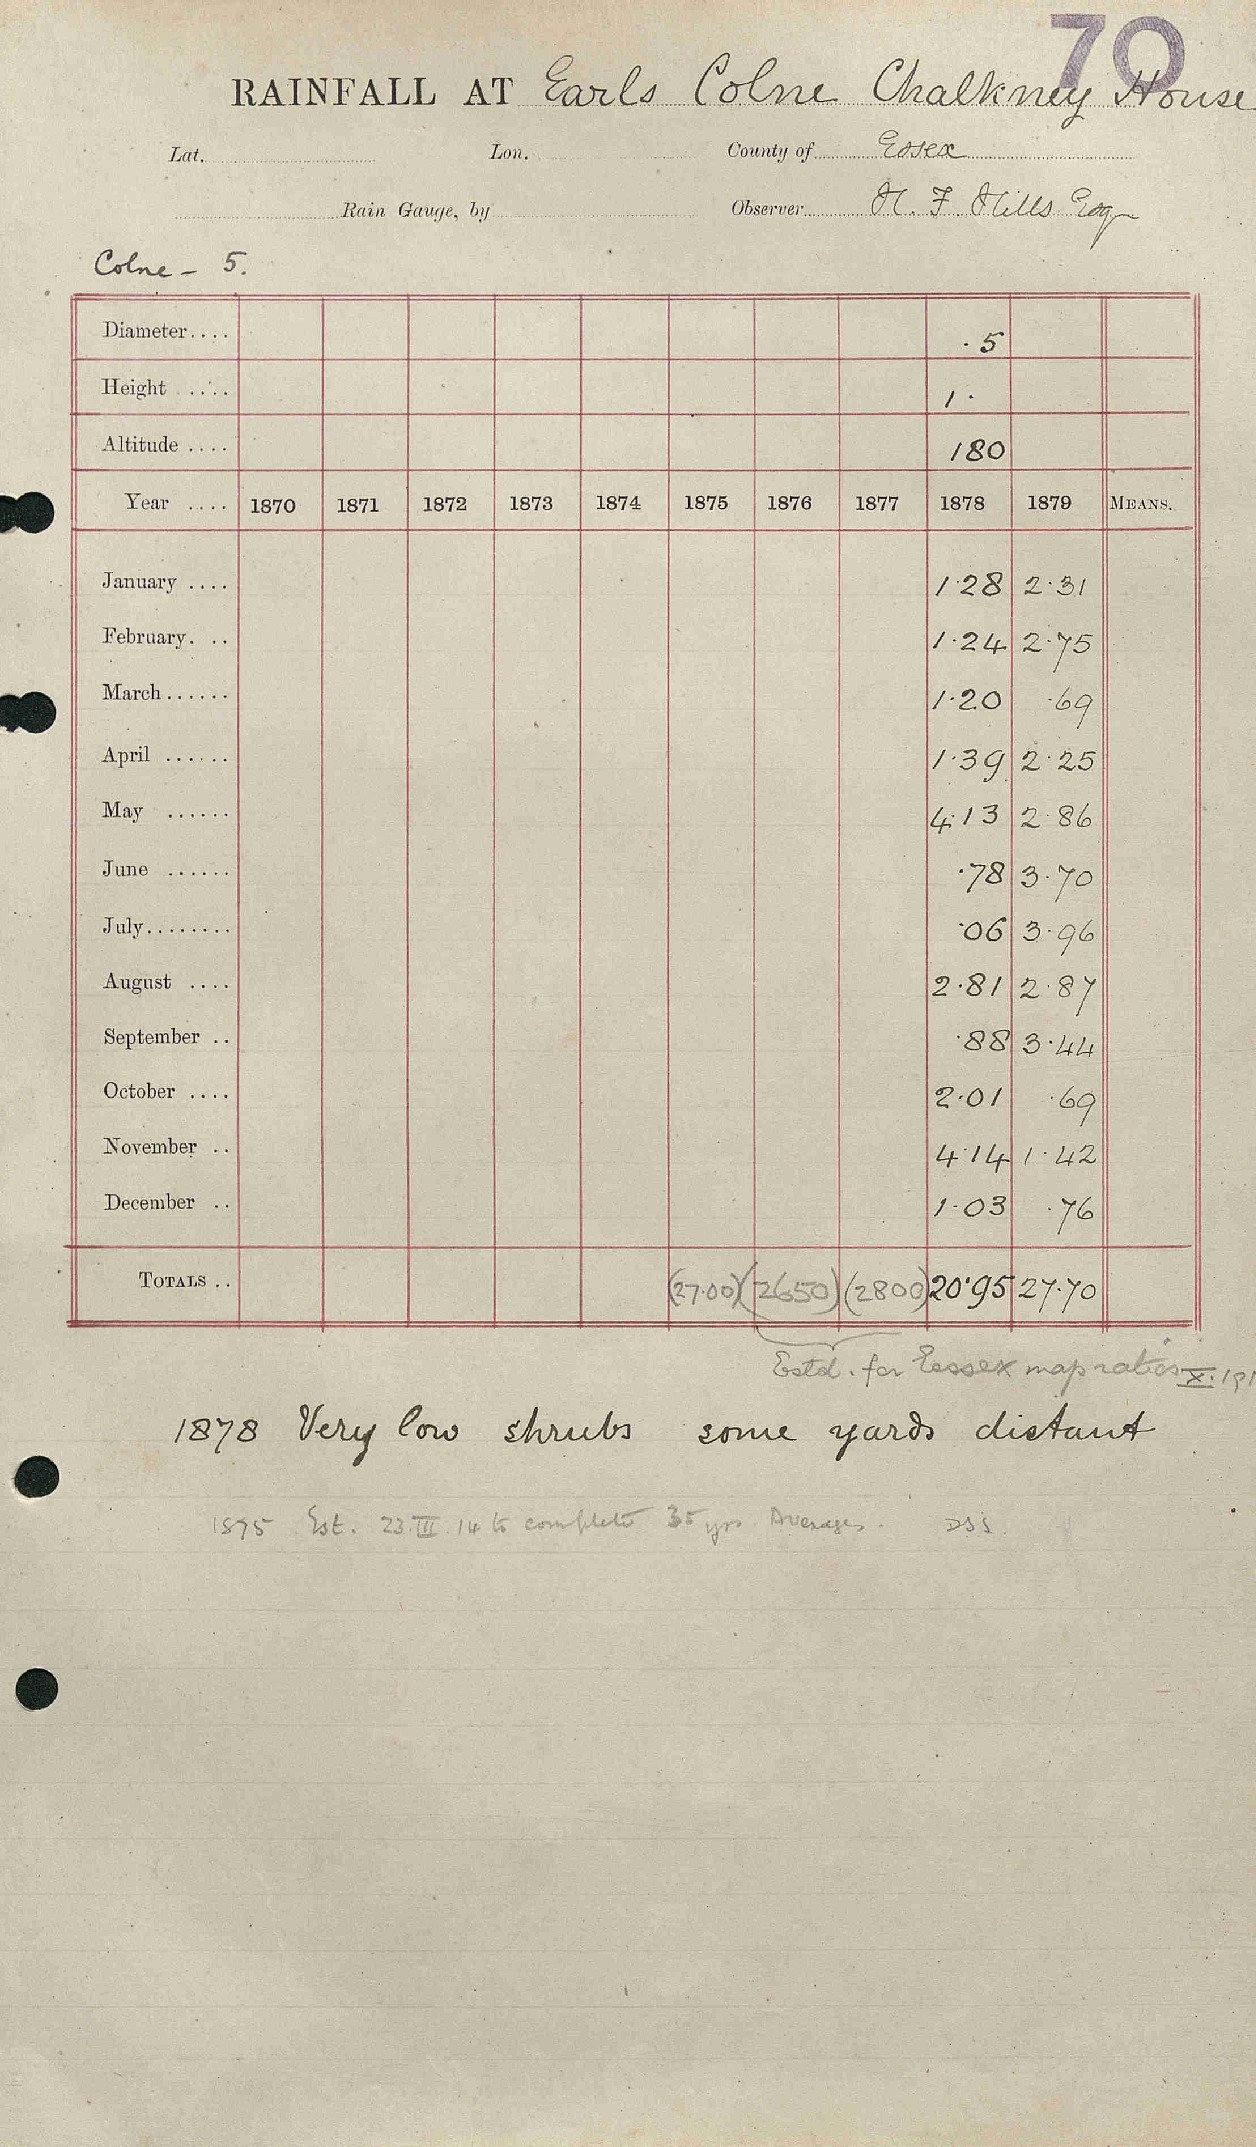 70
RAINFALL AT Earls Colne Chalkney House
Lat. Lon. County of Essex
Rain Gauge, by Observer H. F. Hills Esq
Colne - 5.
Diameter.... ·5
Height .... 1·
Altitude .... 180
Year .... 1870 1871 1872 1873 1874 1875 1876 1877 1878 1879 MEANS.
January .... 1·28 2·31
February. .. 1·24 2·75
March...... 1·20 ·69
April ...... 1·39 2·25
May ...... 4·13 2·86
June ...... ·78 3·70
July........ ·06 3·96
August .... 2·81 2·87
September .. ·88 3·44
October .... 2·01 ·69
November .. 4·14 1·42
December .. 1·03 ·76
TOTALS .. (27·00) (2650) (2800) 20·95 27·70
Estd. for Essex map ratios X. 191
1878 Very low shrubs some yards distant
1875 Est. 23.III.14 to complete 35 yrs Averages. DSS